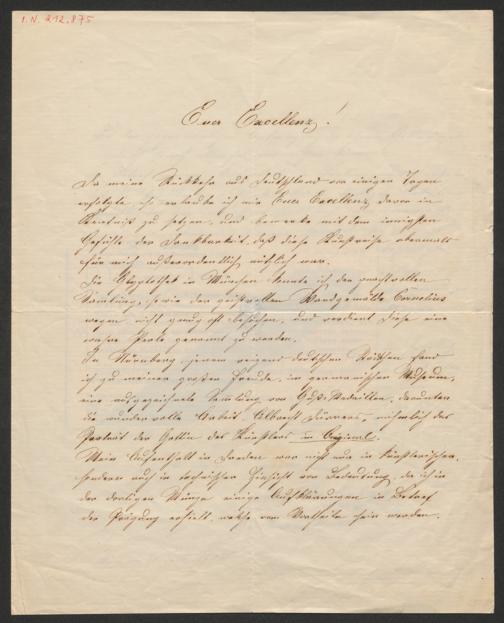 I. N. 212.875
Euer Excellenz!
Da meine Rückkehr aus Deutschland vor einigen Tagen
erfolgte, so erlaube ich mir Euer Excellenz davon in
Kenntniß zu setzen, und bemerke mit dem innigsten
Gefühle der Dankbarkeit, daß diese Kunstreise abermals
für mich außerordentlich nützlich war.
Die Glyptothek in München konnte ich der prachtvollen
Sammlung, sowie der geistvollen Wandgemälde Cornelius
wegen nicht genug oft besuchen, und verdient diese eine
wahre Perle genannt zu werden.
In Nürnberg, jenem deutschen Städtchen fand
ich zu meiner großen Freude, im germanischen Museum,
eine ausgezeichnete Samlung von Guß-Medaillen, darunter
die wundervolle Arbeit Albrecht Dürrers, nähmlich das
Portrait der Gattin des Künstlers in Original.
Mein Aufenthalt in Dresden war nicht nur in künstlerischer,
sondern auch in technischer Hinsicht von Bedeutung, da ich in
der dortigen Münze einige Aufklärungen in Betreff
der Prägung erhielt, welche vom Vortheile sein werden.